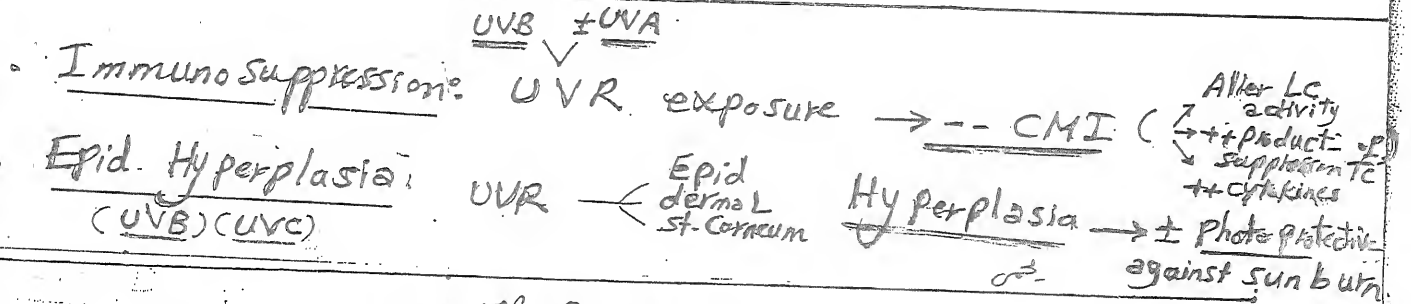 UVB ± UVA
• Immuno Suppression: UVR exposure → -- CMI (
Alter Lc
activity
→ ++ Product=
suppression Tc
++ cytokines
Epid. Hyperplasia: UVR
(UVB) (UVC)
Epid
dermal
st. Corneum
Hyperplasia → ± Photo protective
against sun burn.